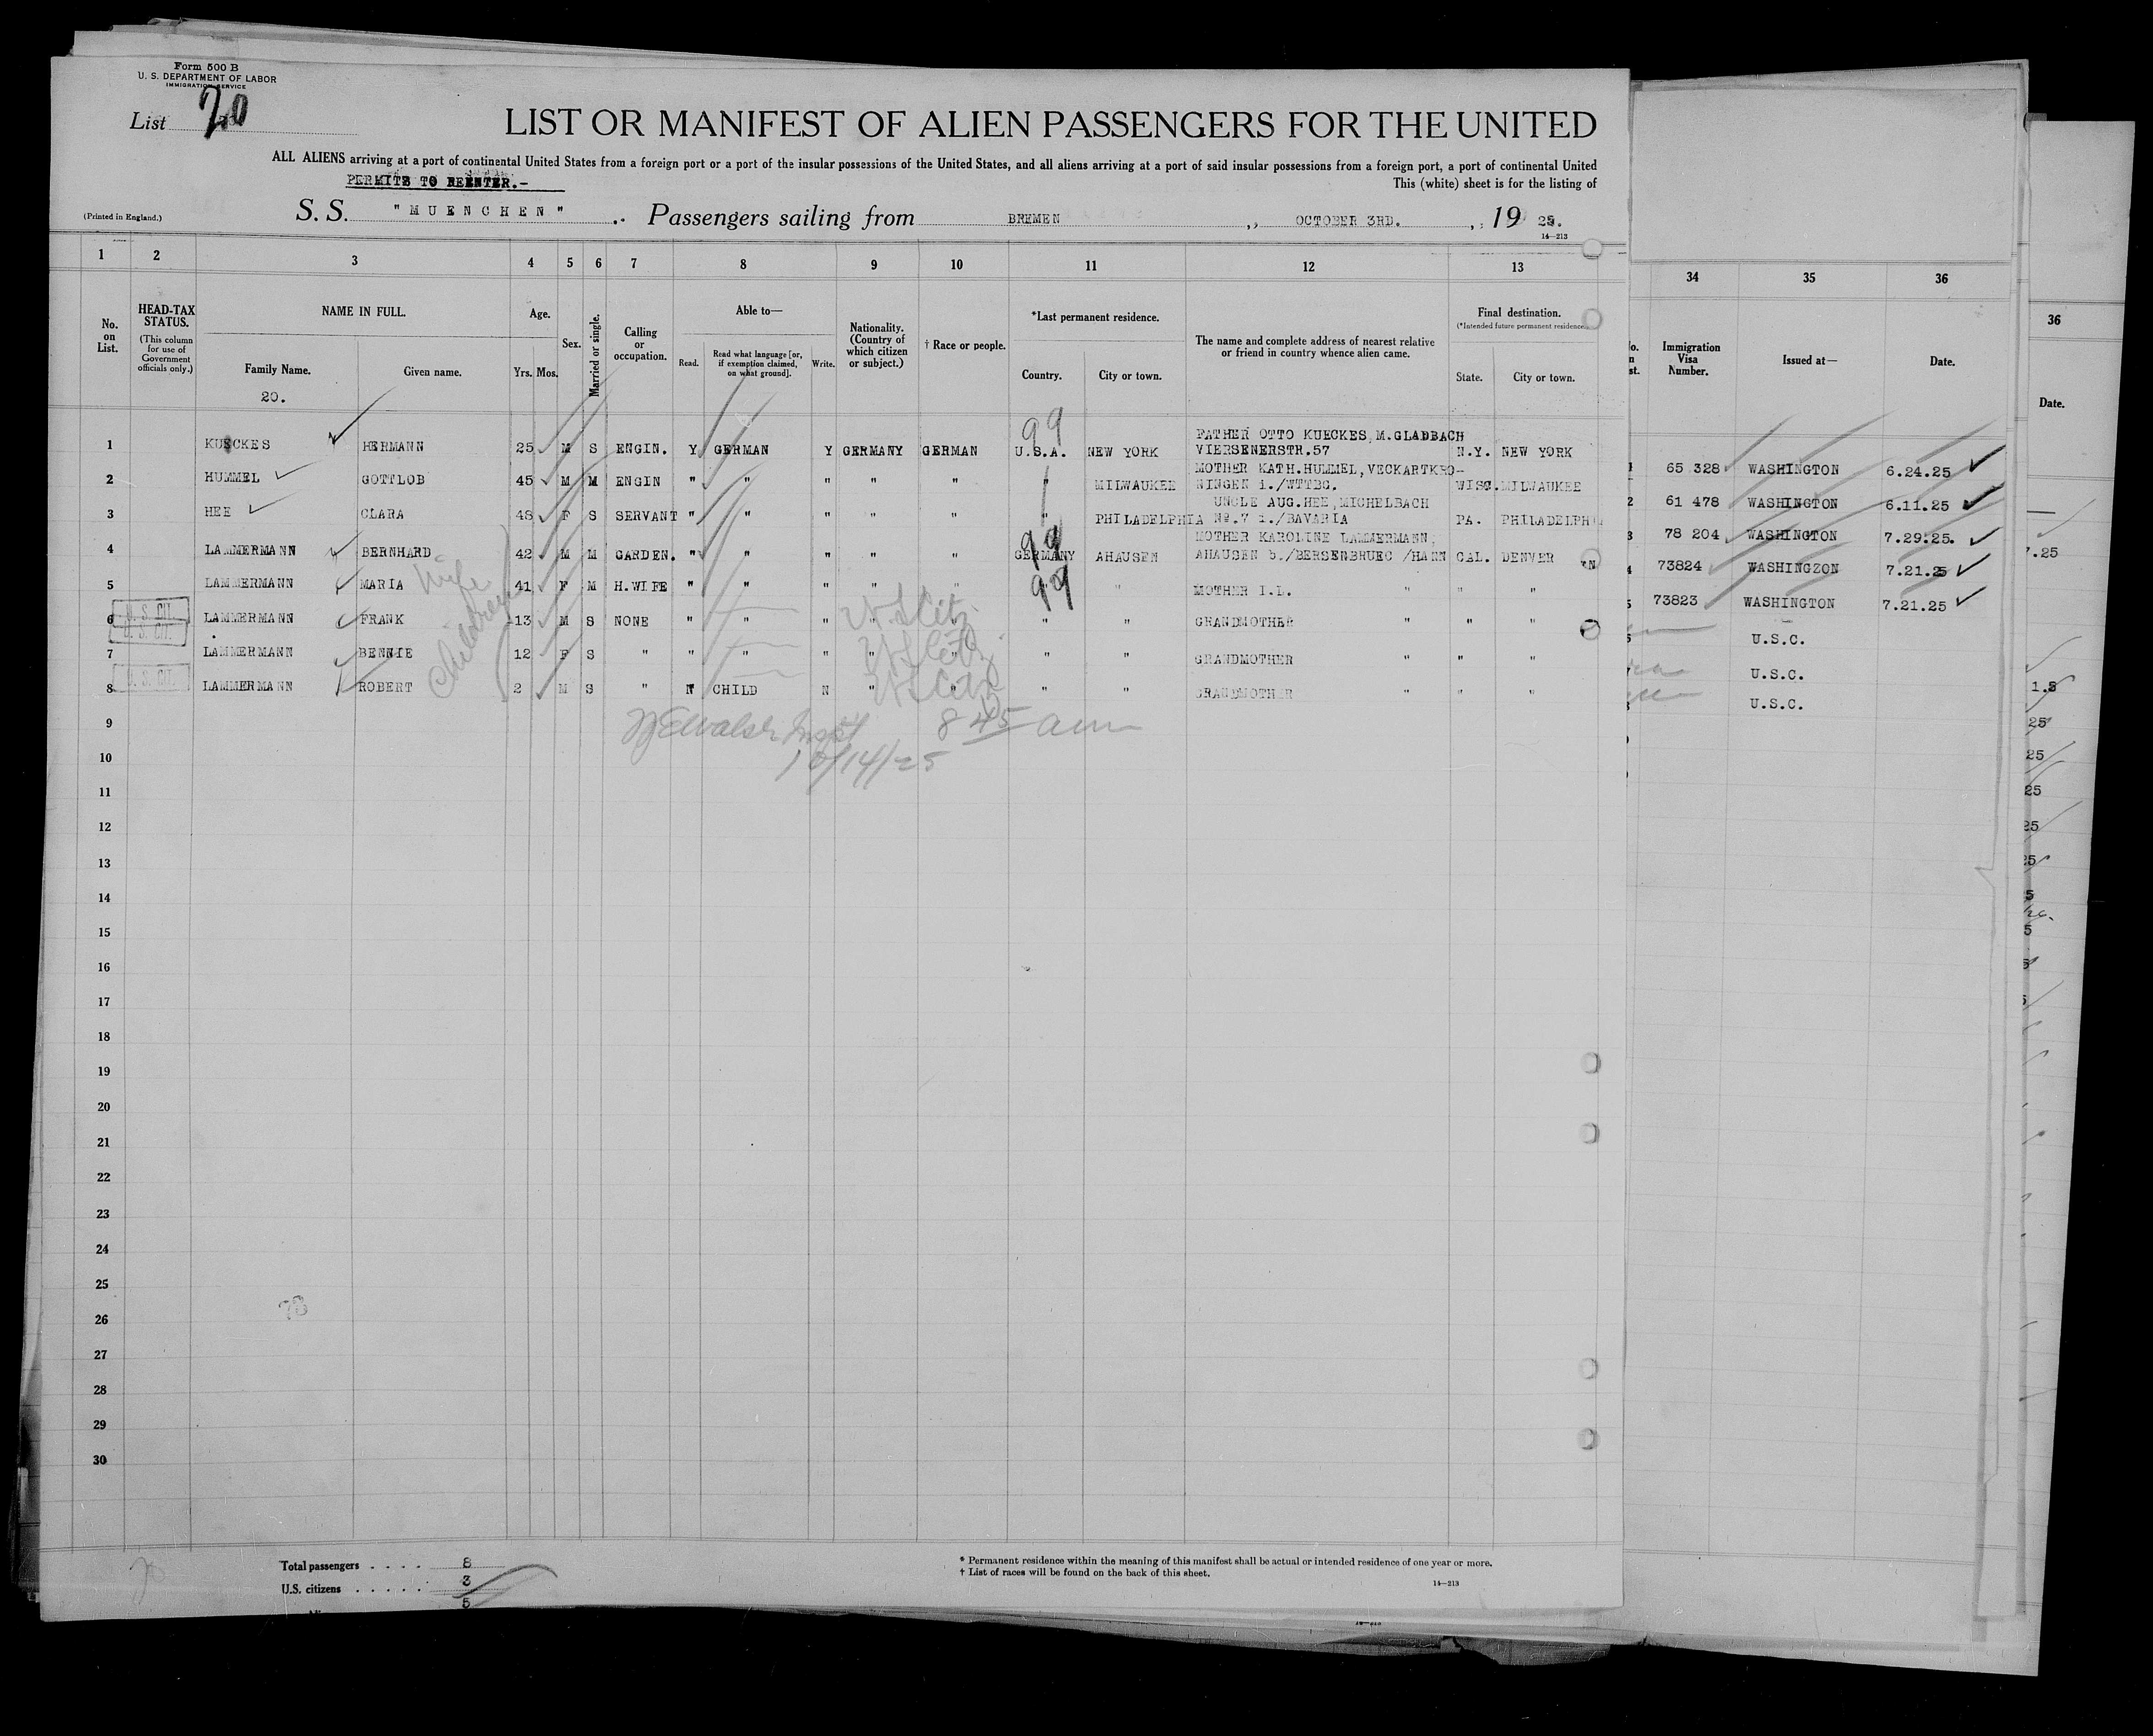 Form 500 B
U. S. DEPARTMENT OF LABOR
IMMIGRATION SERVICE
List 20
LIST OR MANIFEST OF ALIEN PASSENGERS FOR THE UNITED
ALL ALIENS arriving at a port of continental United States from a foreign port or a port of the insular possessions of the United States, and all aliens arriving at a port of said insular possessions from a foreign port, a port of continental United
PERMITS TO REENTER.-
This (white) sheet is for the listing of
(Printed in England.)
S. S. "MUENCHEN" Passengers sailing from BREMEN, OCTOBER 3RD., 19 25.
14—213
1 2 3 4 5 6 7 8 9 10 11 12 13 34 35 36
36
No. on List.
HEAD-TAX STATUS.
(This column for use of Government officials only.)
NAME IN FULL.
Family Name.
Given name.
20.
Age.
Yrs. Mos.
Sex.
Married or single.
Calling or occupation.
Able to—
Read.
Read what language [or, if exemption claimed, on what ground].
Write.
Nationality. (Country of which citizen or subject.)
† Race or people.
*Last permanent residence.
Country.
City or town.
The name and complete address of nearest relative or friend in country whence alien came.
Final destination.
(*Intended future permanent residence.)
State.
City or town.
Immigration Visa Number.
Issued at—
Date.
Date.
99
FATHER OTTO KUECKES, M.GLADBACH
1 KUECKES HERMANN 25 M S ENGIN. Y GERMAN Y GERMANY GERMAN U.S.A. NEW YORK VIERSENERSTR.57 N.Y. NEW YORK
1 65 328 WASHINGTON 6.24.25
MOTHER KATH.HUMMEL, VECKARTKRO-
2 HUMMEL GOTTLOB 45 M M ENGIN " " " " " " MILWAUKEE NINGEN i./WTTBG. WISC. MILWAUKEE
2 61 478 WASHINGTON 6.11.25
UNCLE AUG.HEE, MICHELBACH
3 HEE CLARA 48 F S SERVANT " " " " " " PHILADELPHIA No.7 i./BAVARIA PA. PHILADELPH
3 78 204 WASHINGTON 7.29.25.
99
MOTHER KAROLINE LAMMERMANN,
4 LAMMERMANN BERNHARD 42 M M GARDEN. " " " " " GERMANY AHAUSEN AHAUSEN b./BERSENBRUEC /HANN CAL. DENVER
4 73824 WASHINGZON 7.21.25
wife
99
5 LAMMERMANN MARIA 41 F M H.WIFE " " " " " " " MOTHER I.L. " " "
5 73823 WASHINGTON 7.21.25
children
U. S. CIT.
U. S. CIT.
6 LAMMERMANN FRANK 13 M S NONE " " " " " " " GRANDMOTHER " " "
U S Citz
U.S.C.
7 LAMMERMANN BENNIE 12 F S " " " " " " " " GRANDMOTHER " " "
U S Citz
U.S.C.
U. S. CIT.
8 LAMMERMANN ROBERT 2 M S " N CHILD N " " " " GRANDMOTHER " " "
U S Citz
U.S.C.
9
Walsh Inspt 8 45 am
10/14/25
10
11
12
13
14
15
16
17
18
19
20
21
22
23
24
25
26
27
28
29
30
Total passengers . . . . 8
U.S. citizens . . . . . 3
5
* Permanent residence within the meaning of this manifest shall be actual or intended residence of one year or more.
† List of races will be found on the back of this sheet.
14—213